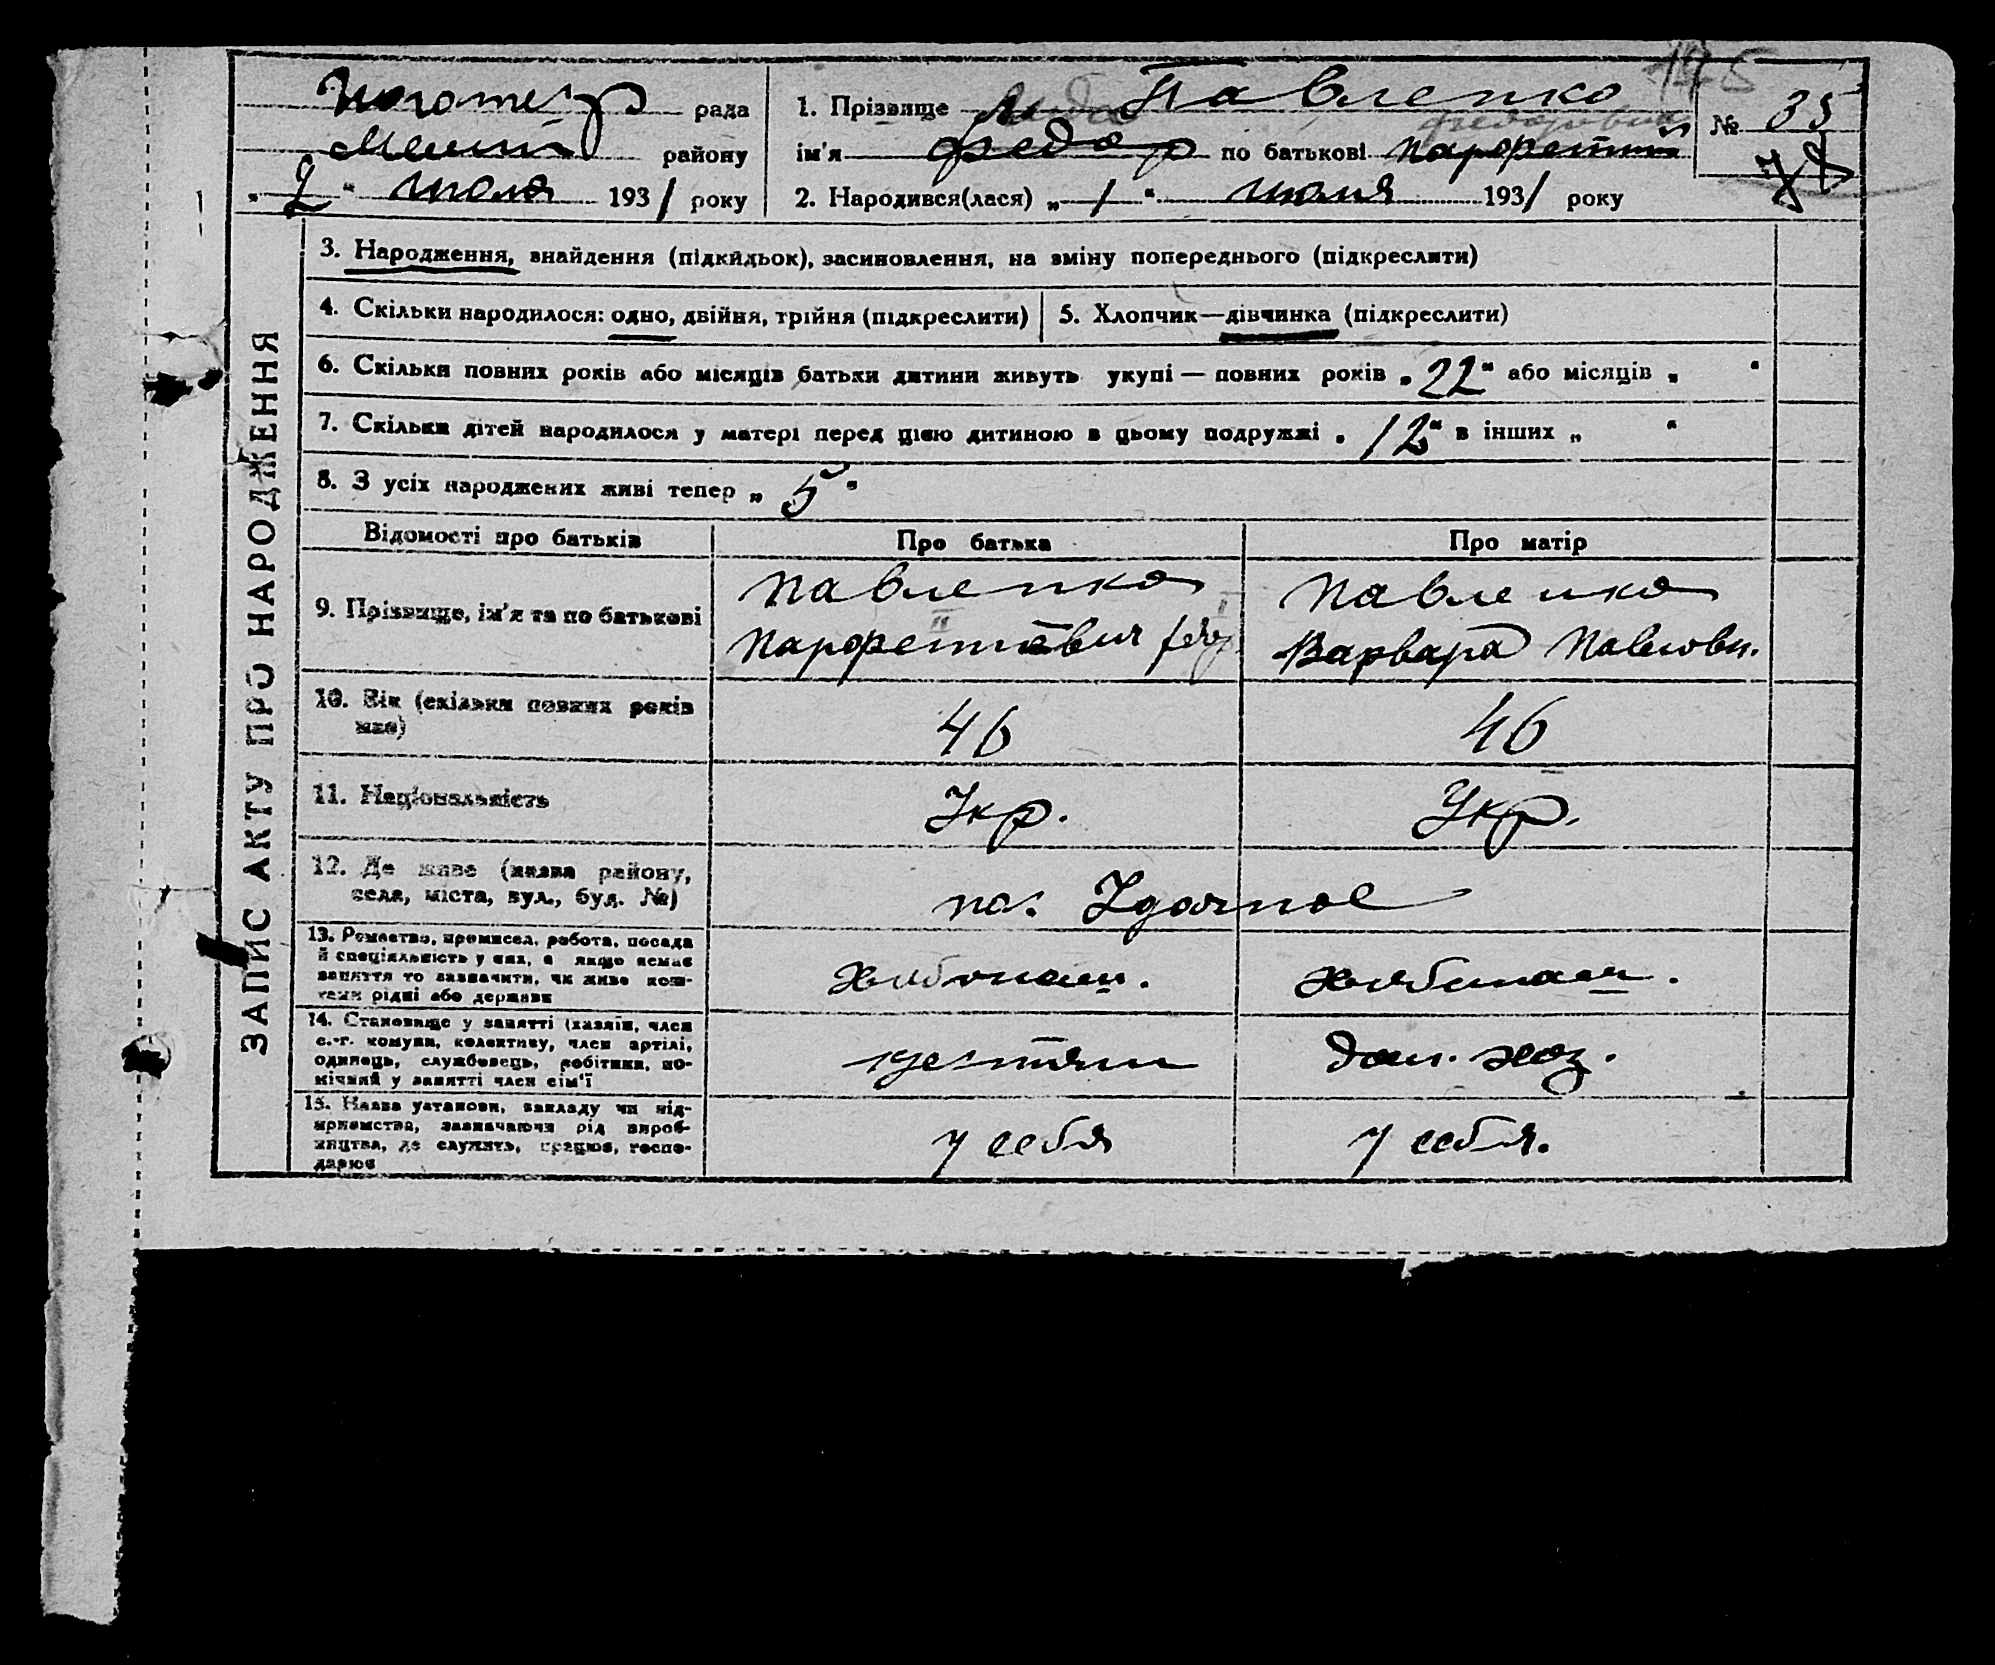 рада
1. Прізвище Лида Павленко
№ 35
району
ім'я Федор по батькові
"2" июля 1931 року
2. Народився(лася) „1" июля 1931 року
ЗАПИС АКТУ ПРО НАРОДЖЕННЯ
3. Народження, знайдення (підкидьок), засиновлення, на зміну попереднього (підкреслити)
4. Скільки народилося: одно, двійня, трійня (підкреслити)
5. Хлопчик—дівчинка (підкреслити)
6. Скільки повних років або місяців батьки дитини живуть укупі — повних років „22" або місяців „ "
7. Скільки дітей народилося у матері перед цією дитиною в цьому подружжі „12" в інших „ "
8. З усіх народжених живі тепер „5"
Відомості про батьків
Про батька
Про матір
9. Прізвище, ім'я та по батькові
Павленко
Павленко
Варвара Павловн.
10. Вік (скільки повних років має)
46
46
11. Національність
Укр.
Укр.
12. Де живе (назва району,
села, міста, вул., буд. №)
пос. Удачное
13. Ремество, промисел, робота, посада
й спеціяльність у них, а якщо немає
заняття то зазначити, чи живе кош-
тами рідні або держави
хлебопаш.
хлебопаш.
14. Становище у занятті (хазяїн, член
с.-г. комуни, колективу, член артілі,
одинець, службовець, робітник, по-
мічний у занятті член сім'ї
дом. хоз.
15. Назва установи, закладу чи під-
приємства, зазначаючи рід вироб-
ництва, де служить, працює, госпо-
дарює
у себя
у себя.